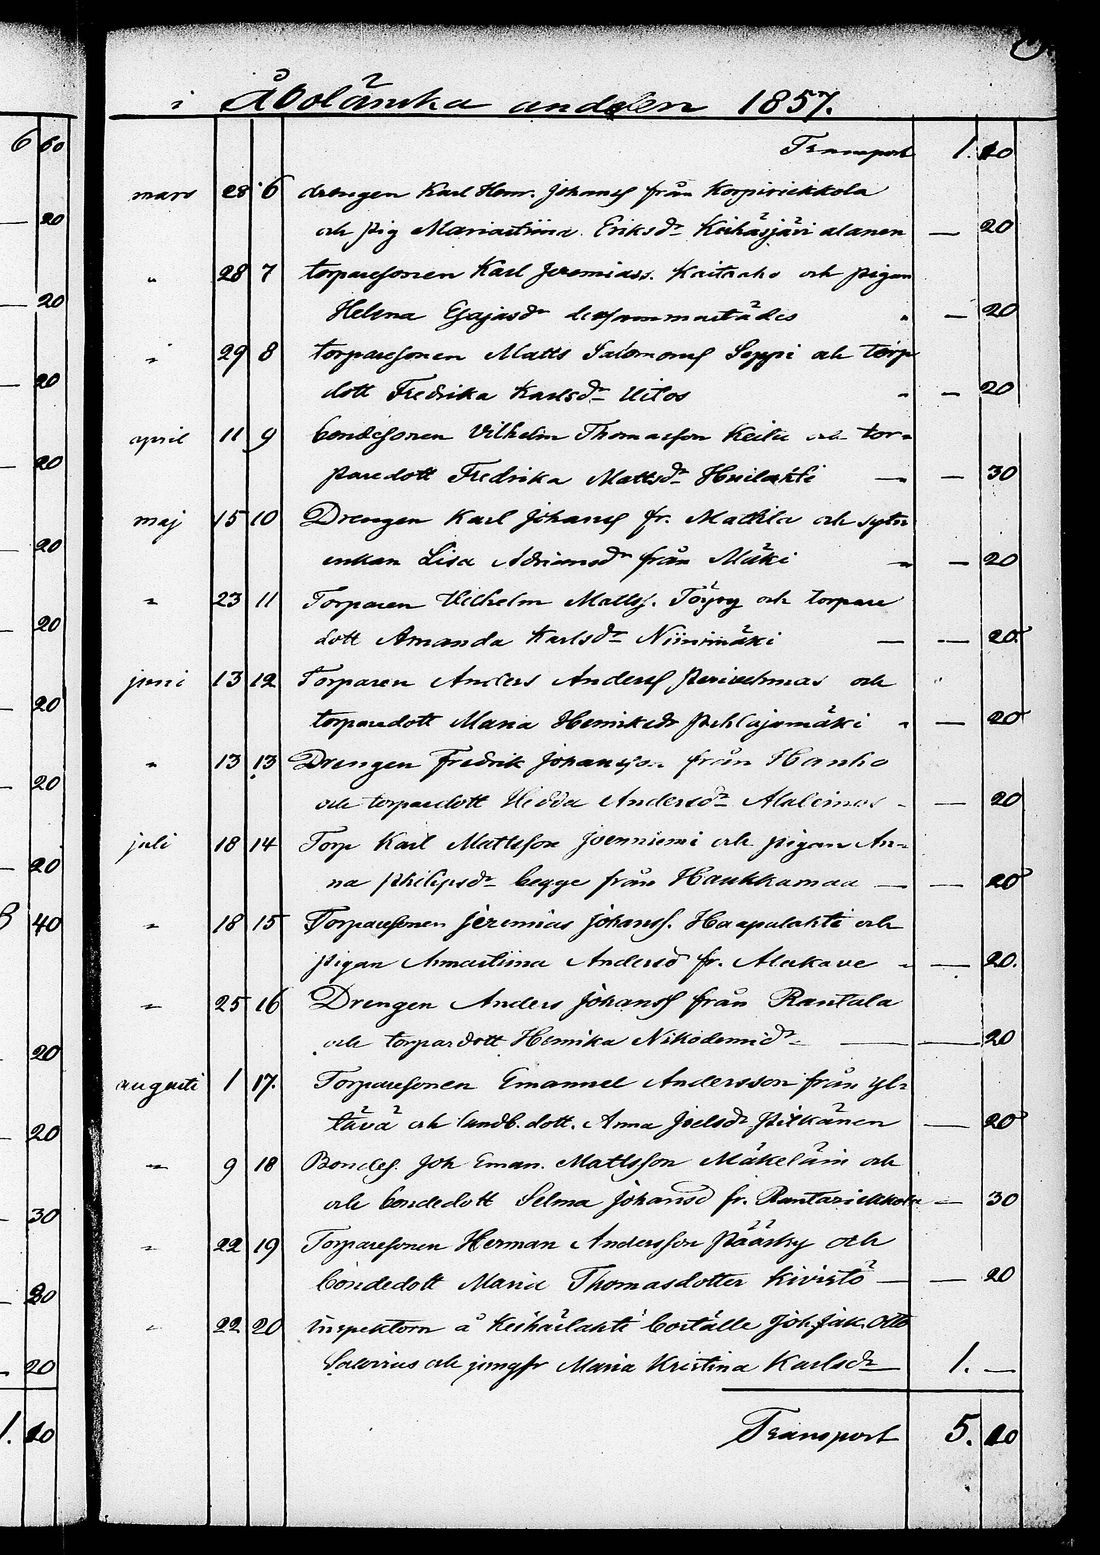 i Åbolänska andelen 1857.
Transport 1. 10
mars 28 6 drengen Karl Henr. Johanss från Korpiriekkola
och pig Mariastiina Eriksdr Keihäsjärvi alanen — 20
" 28 7 torparesonen Karl Jeremiass. Kaitsaho och pigan
Helena Esajasdr dersammastädes " — 20
" 29 8 torparesonen Matts Salomonss Seppi och torp
dott Fredrika Karlsdr Uitos " — 20
april 11 9 bondesonen Vilhelm Thomasson Keihi och tor=
paredott Fredrika Mattsdr Huilahti — — 30
maj 15 10 Drengen Karl Johanss fr. Mattila och sytn
enkan Lisa Adriansdr från Mäki — — 20
" 23 11 Torparen Vilhelm Matts. och torpare
dott Amanda Karlsdr Niinimäki — — 20
juni 13 12 Torparen Anders Anderss och
torparedott Maria Henriksdr Pihlajamäki " — 20
" 13 13 Drengen Fredrik Johansson från Hanho
och torparedott Hedda Andersdr - — 20
juli 18 14 Torp Karl Mattsson Joenniemi och pigan An=
na Philipsdr begge från Haukkamaa — — 20
" 18 15 Torparesonen Jeremias Johanss. Haapalahti och
pigan Annastiina Andersd fr. Alakave - — 20.
" 25 16 Drengen Anders Johanss från Rantala
och torpardott Henrika Nikodemidr — — 20
augusti 1 17. Torparesonen Emanuel Andersson från yl=
tävä och landb. dott. Anna Joelsdr Pitkänen — 20
" 9 18 Bondes. Joh Eman. Mattsson Mäkeläin och
och bondedott Selma Johansd fr. Rantariekkola — 30
" 22 19 Torparesonen Herman Andersson Pääsky och
bondedott Maria Thomasdotter Kivistö — — 20
" 22 20 inspektorn å Keihäslahti boställe Joh Jak. Otto
Salovius och jungfr Maria Kristina Karlsdr 1. —
Transport 5. 10
6 60
20
20
20
20
20
20
20
20
20
40
20
20
30
20
20
1. 10